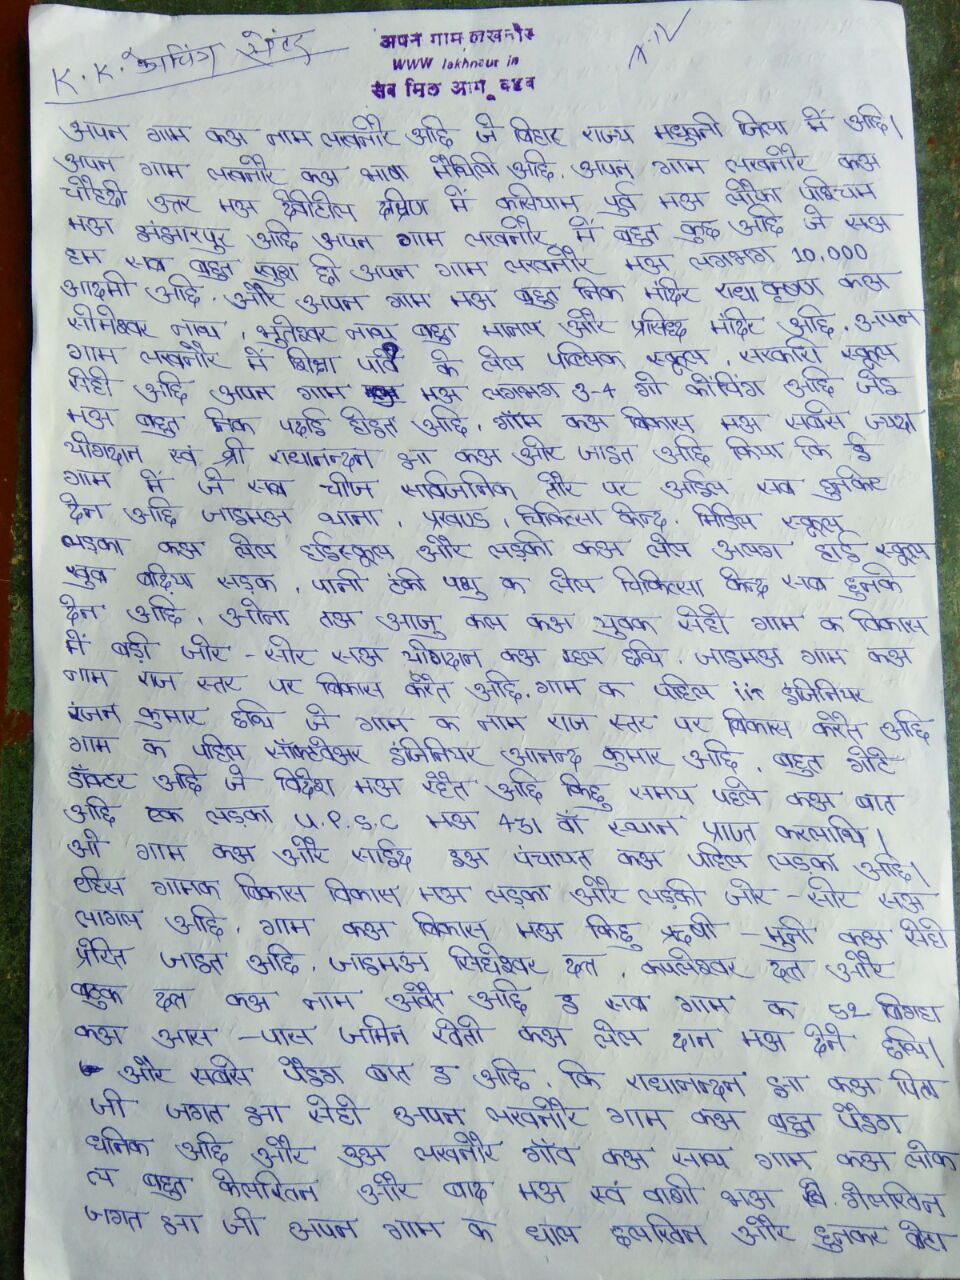 K. K. कोचिंग सेन्टर
अपन गाम लखनौर
WWW lakhnaur in
सब मिल आगू बढब
अपन गाम कअ नाम लखनौर अछि जे बिहार राज्य मधुबनी जिला में अछि।
अपन गाम लखनौर कअ भाषा मैथिली अछि. अपन गाम लखनौर कअ
चौहदी उत्तर मअ दैवीटोल दक्षिण में कसियाम पुर्व मअ लौफा पश्चिम
मअ झंझारपुर अछि अपन गाम लखनौर में बहुत कुछ अछि जे सअ
हम सब बहुत खुश छी अपन गाम लखनौर मअ लगभग 10,000
आदमी अछि. और अपन गाम मअ बहुत निक मंदिर राधा कृष्ण कअ
सोमेश्वर नाथ, भूतेश्वर नाथ बहुत मानल और प्रसिद्ध मंदिर अछि. अपन
गाम लखनौर में शिक्षा के लेल पब्लिक स्कूल. सरकारी स्कूल
सेहो अछि अपन गाम मअ लगभग 3-4 गो कोचिंग अछि जेइ
मअ बहुत निक पढाई होइत अछि. गॉम कअ विकास मअ सबसे ज्यदा
योगदान स्वं श्री राधानन्दन झा कअ और जाइत अछि किया कि इ
गाम में जे सब चीज सार्वजनिक तौर पर अछि सब हुनकेर
देन अछि जाइमअ थाना, प्रखण्ड, चिकित्सा केन्द्र. मिडिल स्कूल
लड़का कअ लेल हाईस्कूल और लड़की कअ लेल अलग हाई स्कूल
खुब बढ़िया सड़क, पानी टंकी पशु क लेल चिकित्सा केन्द्र सब हुनके
देन अछि. ओना तअ आजु कल कअ युवक सेहो गाम क विकास
में बड़ी जोर-सोर सअ योगदान कअ रहल छथि. जाइमअ गाम कअ
नाम राज स्तर पर विकास करैत अछि. गाम क पहिल iit इंजिनियर
रंजन कुमार छथि जे गाम क नाम राज स्तर पर विकास करैत अछि
गाम क पहिल सॉफ्टवेअर इंजिनियर आनन्द कुमार अछि. बहुत गोटे
डॉक्टर अछि जे विदेश मअ रहैत अछि किछु समय पहले कअ बात
अछि एक लड़का U.P.S.C मअ 431 वाँ स्थान प्राप्त करलाथि।
ओ गाम कअ और साईद इअ पंचायत कअ पहिल लड़का अछि।
एहिस गामक विकास विकास मअ लड़का और लड़की जोर-सोर सअ
लागल अछि. गाम कअ विकास मअ किछु ऋषी-मुनी कअ सेहो
प्रेरित जाइत अछि. जाइमअ सिधेश्वर दत, कपलेश्वर दत और
बटुक दत कअ नाम अबैत अछि इ सब गाम क 52 बिगहा
कअ आस-पास जमिन खेती कअ लेल दान मअ देने छथि।
और सबसे पैइग बात इ अछि. कि राधानन्दन झा कअ पिता
जी जगत झा सेहो अपन लखनौर गाम कअ बहुत पैइग
धनिक अछि और इअ लखनौर गॉव कअ साथ गाम कअ लोक
ल बहुत केलखिन और बाद मअ स्वं वाशी भअ गेलखिन
जगत झा जी अपन गाम क छलखिन और हुनकर बेटा